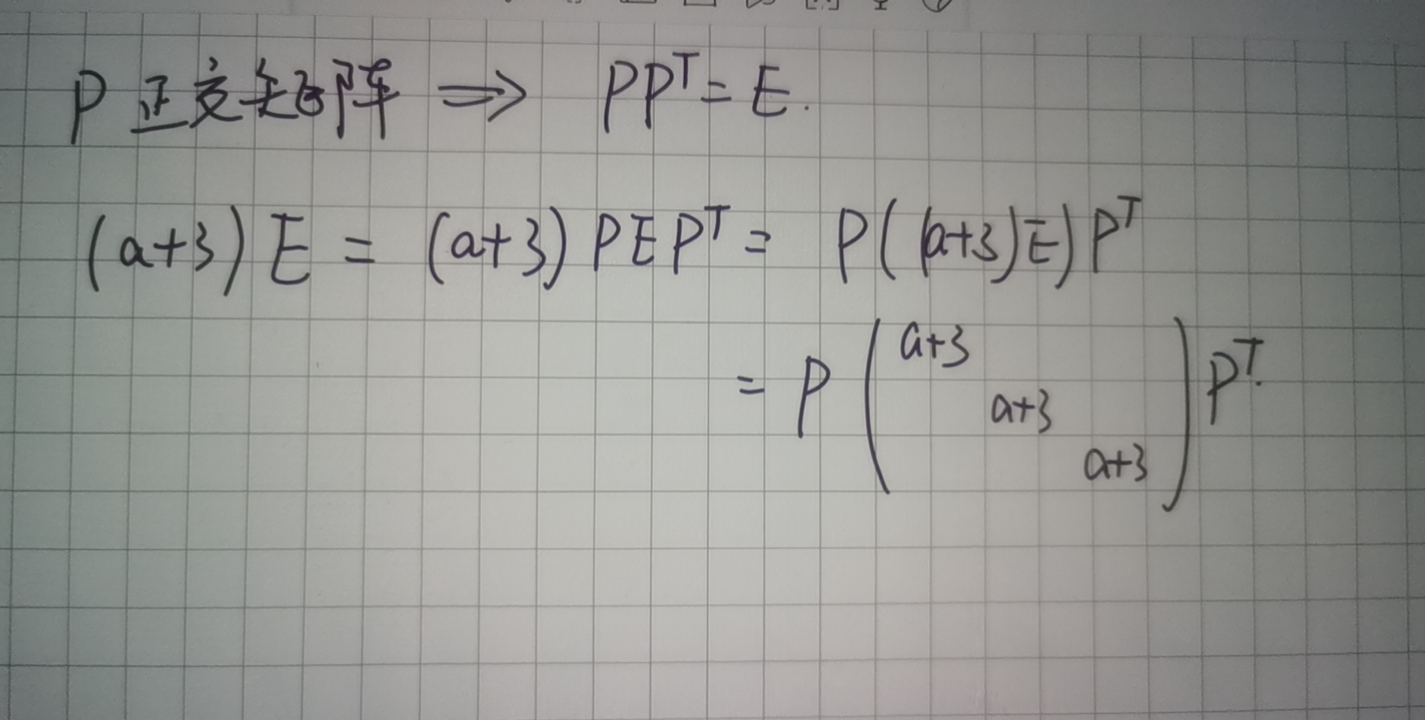 P 正交矩阵 ⟹ PPᵀ = E.
(a+3) E = (a+3) PEPᵀ = P((a+3)E)Pᵀ
= P ( a+3
a+3
a+3 ) Pᵀ.